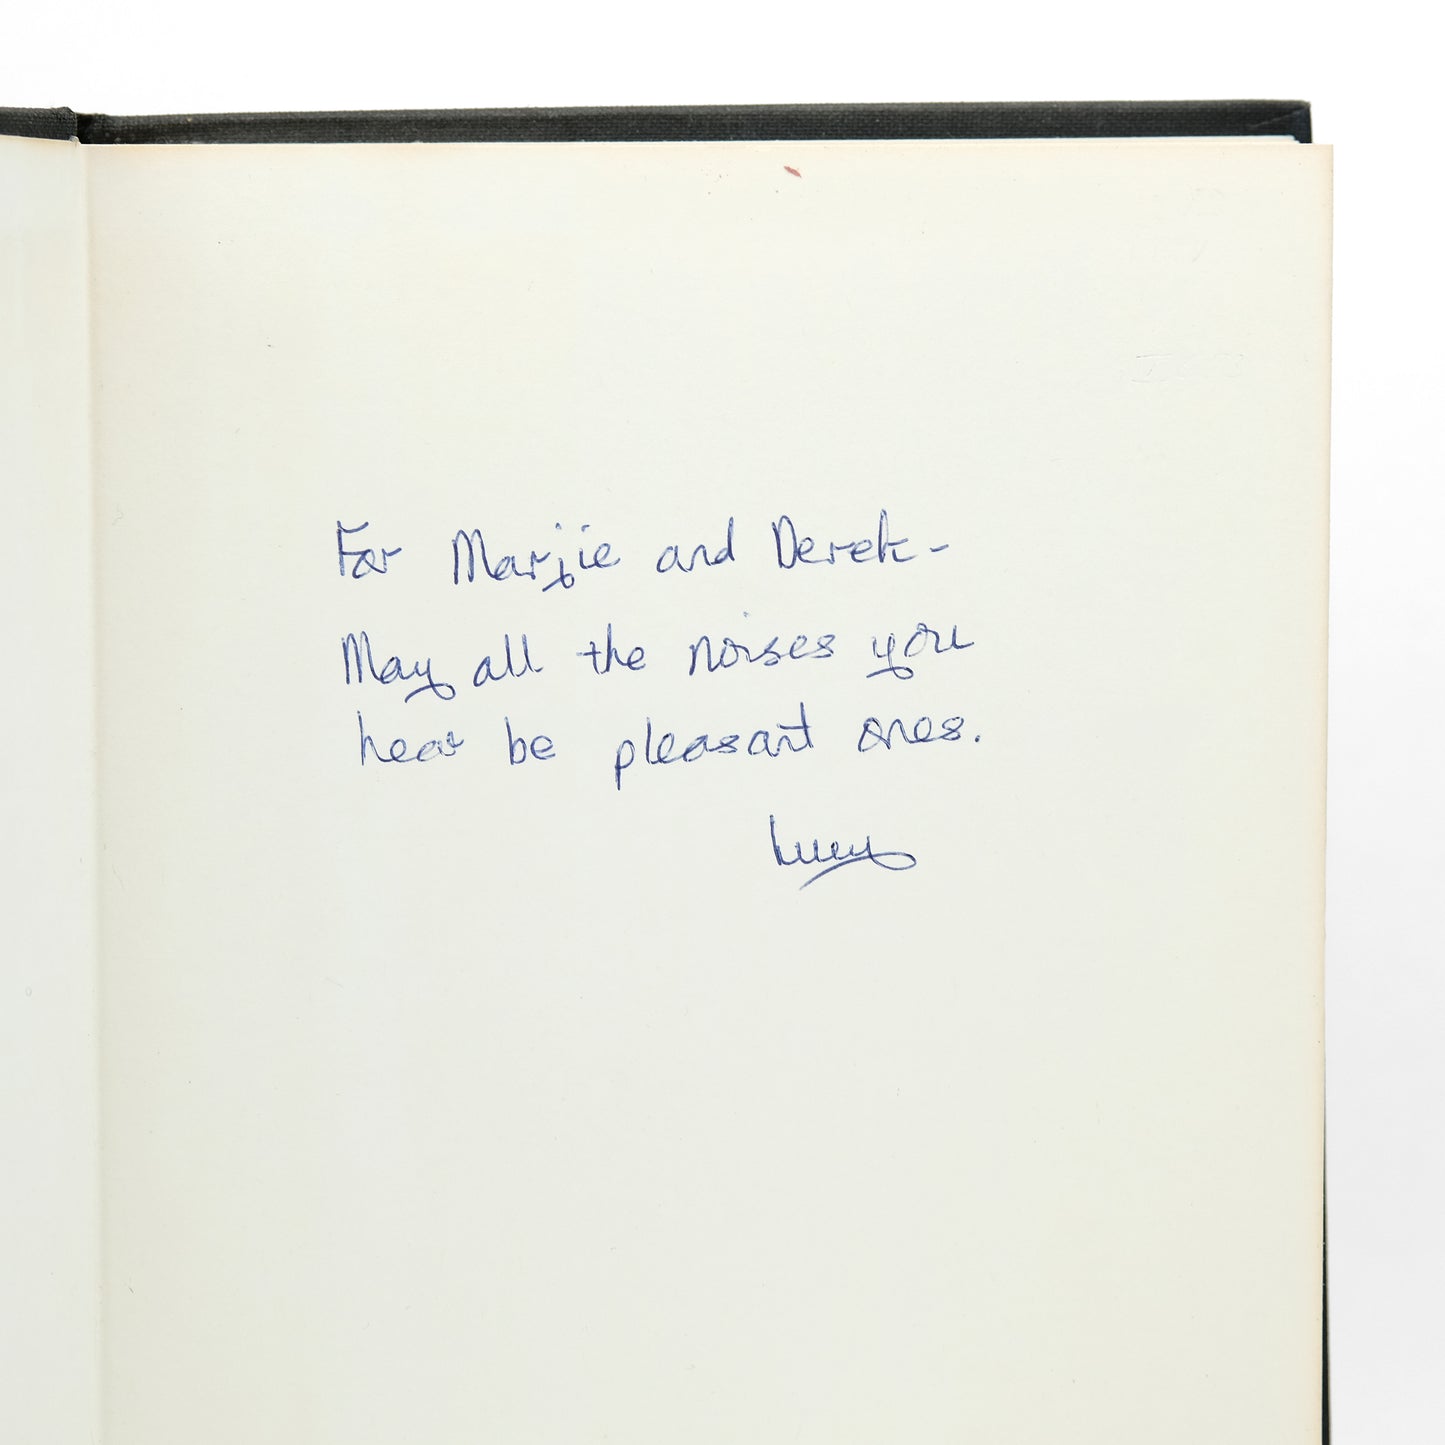 For Marjie and Derek -
May all the noises you
hear be pleasant ones.
Lucy